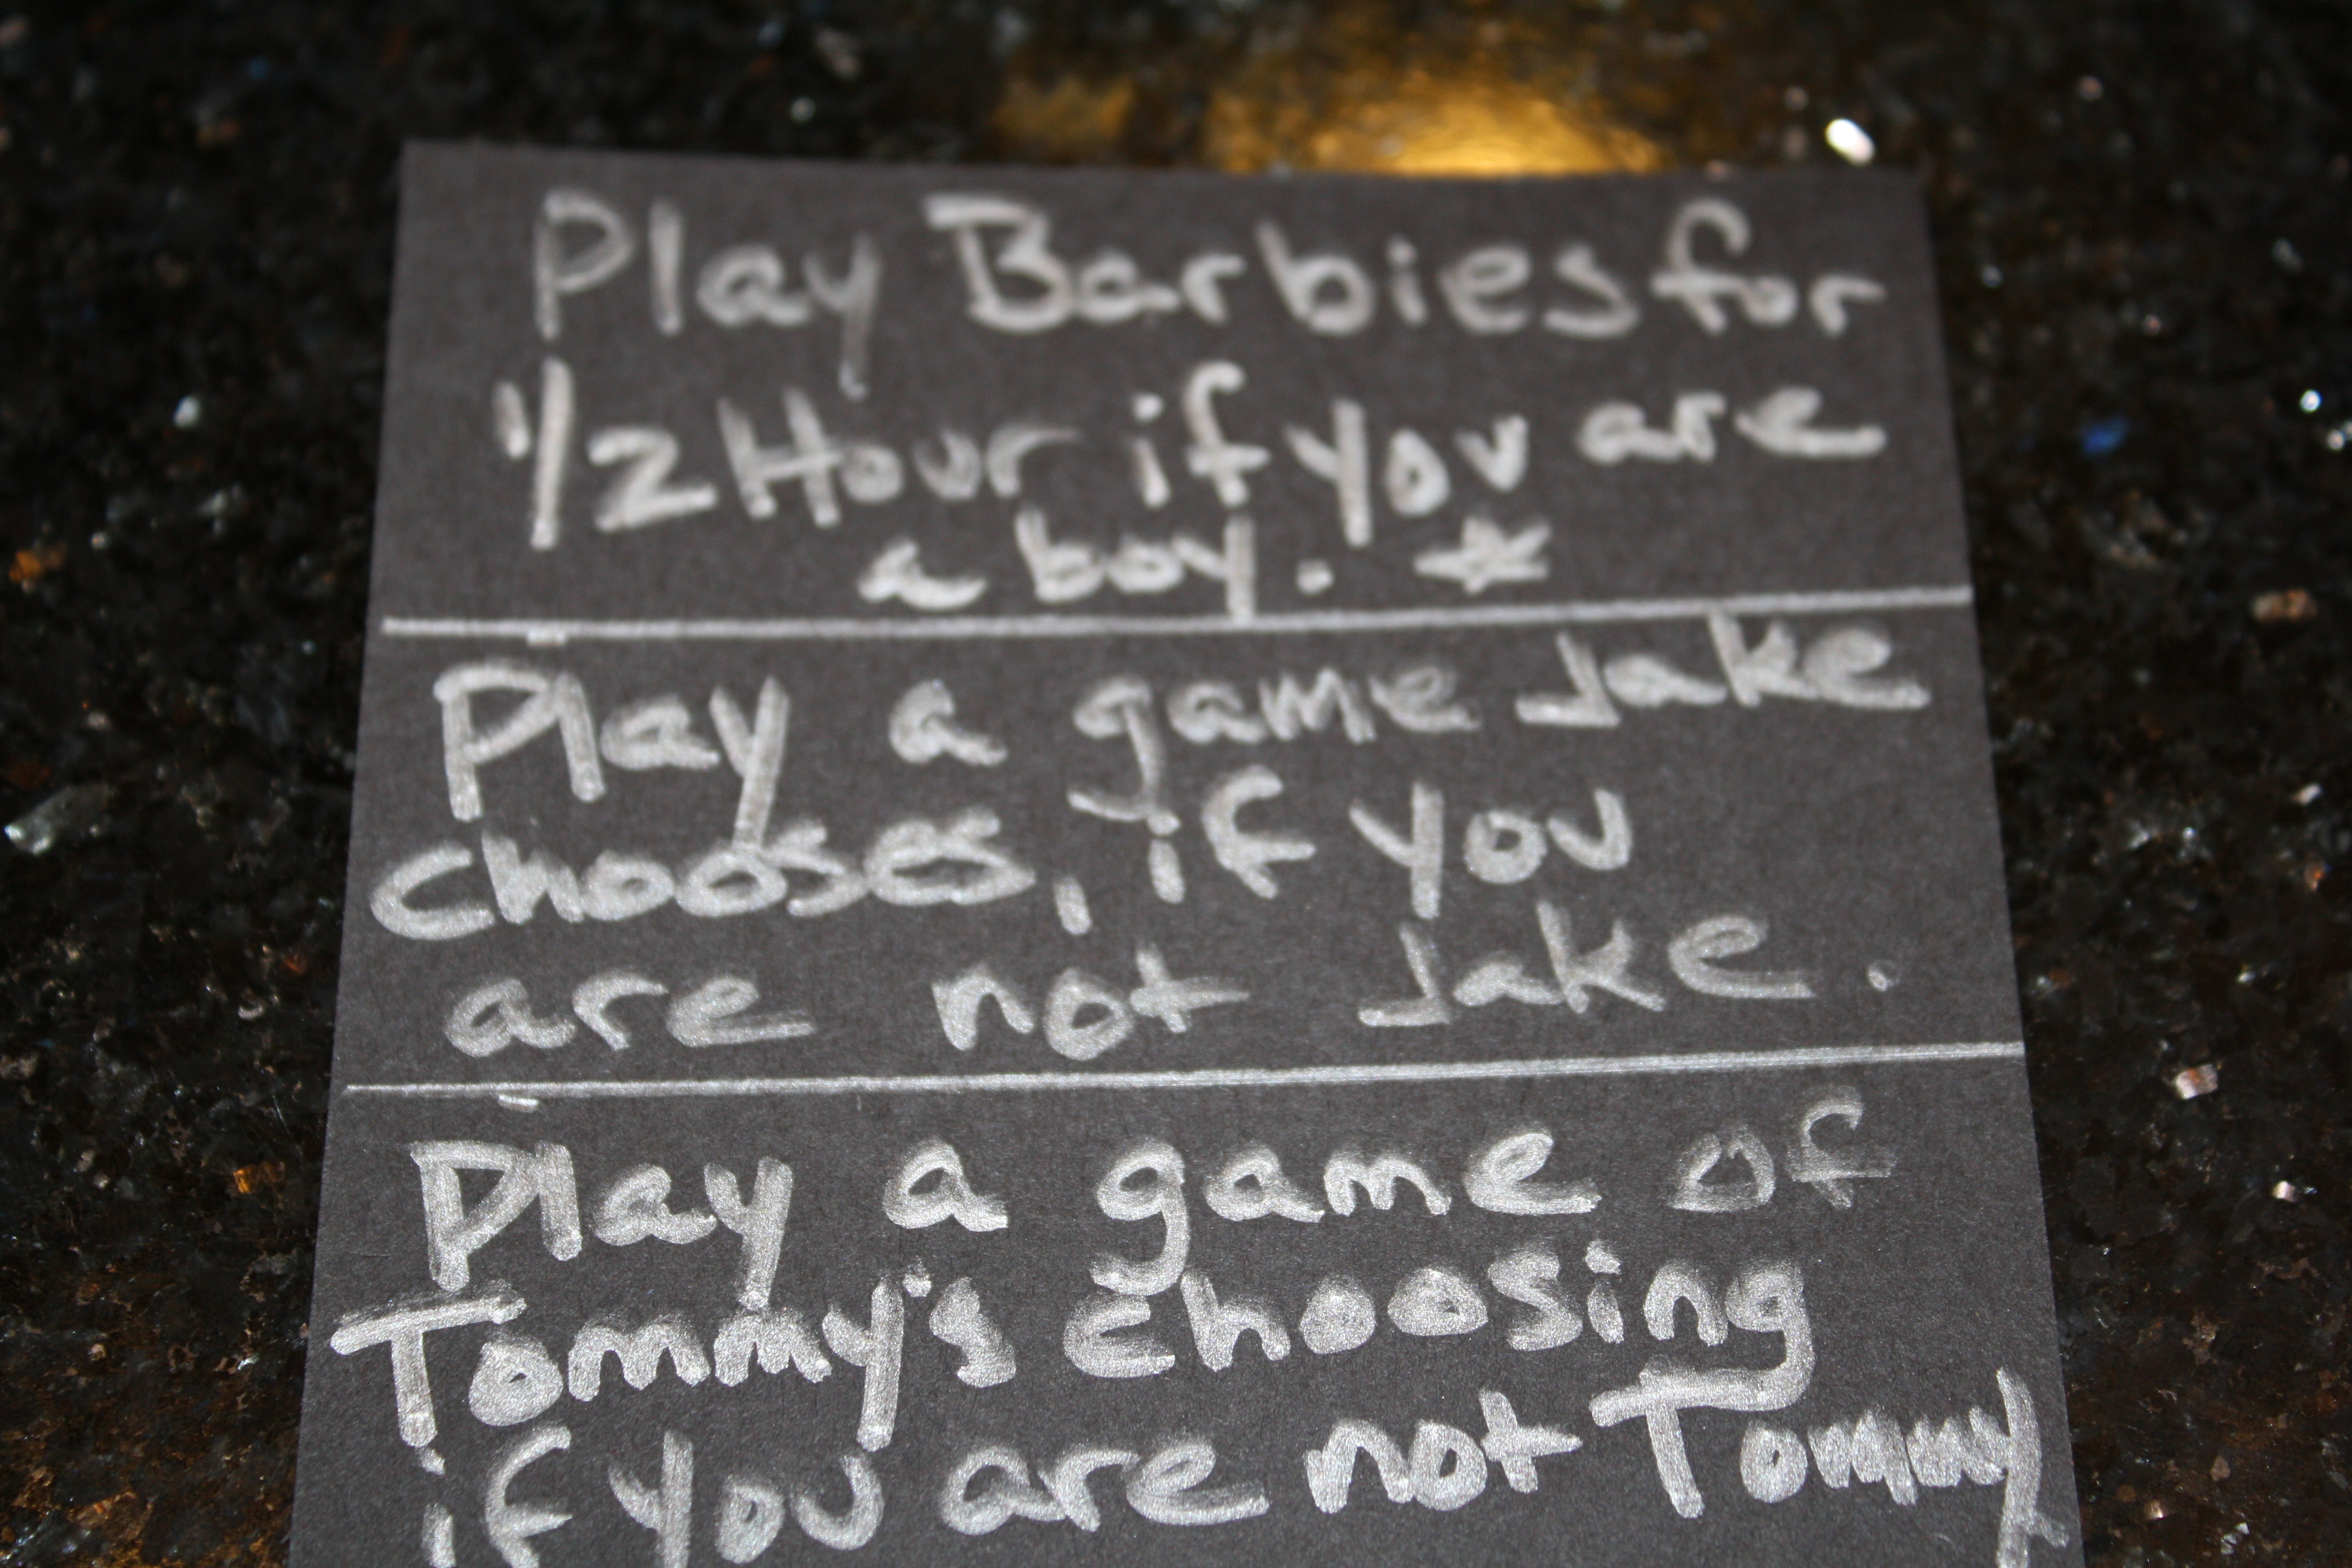 Play Barbies for
1/2 Hour if you are
a boy. *
Play a game Jake
chooses, if you
are not Jake.
Play a game of
Tommy's choosing
if you are not Tommy